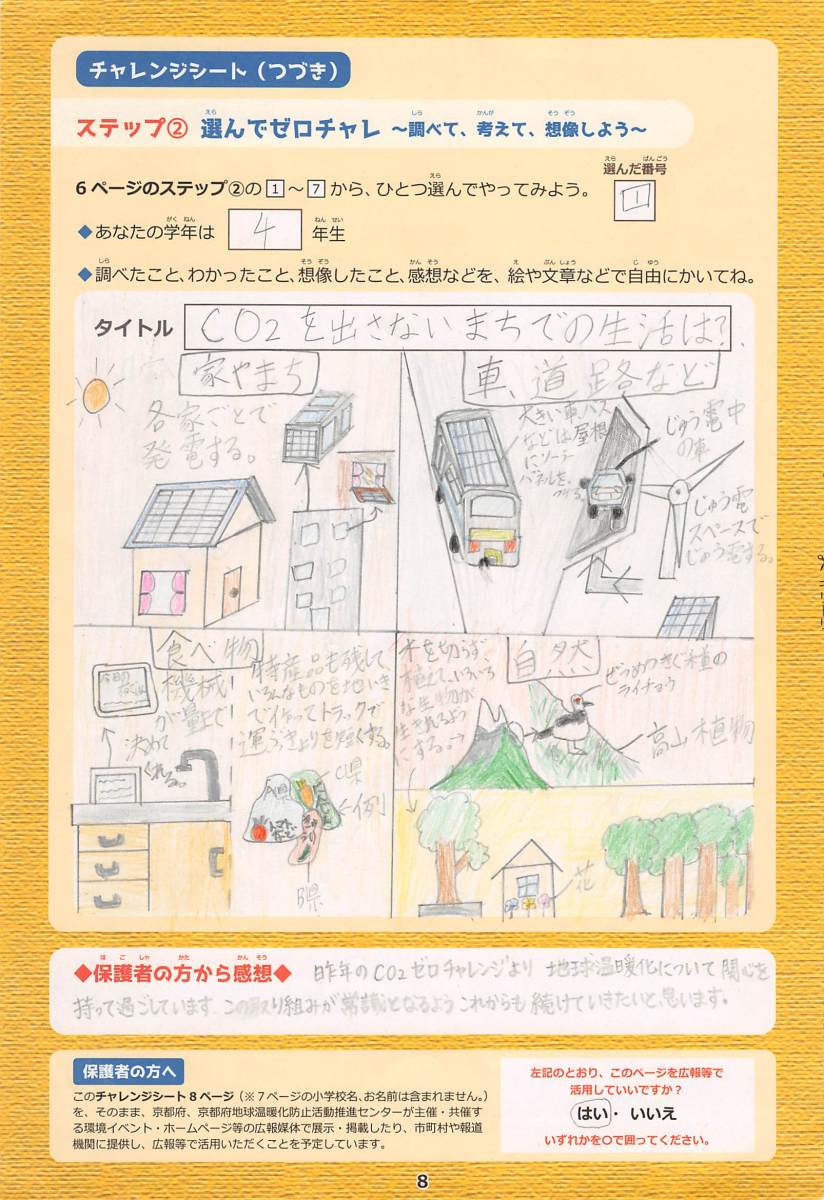 チャレンジシート（つづき）
ステップ② 選んでゼロチャレ ～調べて、考えて、想像しよう～
6ページのステップ②の 1 ～ 7 から、ひとつ選んでやってみよう。
選んだ番号
1
◆あなたの学年は 4 年生
◆調べたこと、わかったこと、想像したこと、感想などを、絵や文章などで自由にかいてね。
タイトル CO2を出さないまちでの生活は?
家やまち
各家ごとで
発電する。
車、道路など
大きい車、バス
などは屋根
にソーラー
パネルを
つける。
じゅう電中
の車
じゅう電
スペースで
じゅう電する。
食べ物
今日の
機械
が量まで
決めて
くれる。
特産品も残して、
いろんなものを地いき
で作ってトラックで
運ぶきょりを短くする。
A県
トマト
きゅうり
C県
例
B県
自然
木を切らず、
植えて、いろいろ
な生物が
生きれるよう
にする。→
ぜつめつきぐ種の
ライチョウ
高山植物
花
◆保護者の方から感想◆ 昨年のCO2ゼロチャレンジより 地球温暖化について関心を
持って過ごしています。この取り組みが常識となるようこれからも続けていきたいと思います。
保護者の方へ
このチャレンジシート8ページ（※7ページの小学校名、お名前は含まれません。）
を、そのまま、京都府、京都府地球温暖化防止活動推進センターが主催・共催す
る環境イベント・ホームページ等の広報媒体で展示・掲載したり、市町村や報道
機関に提供し、広報等で活用いただくことを予定しています。
左記のとおり、このページを広報等で
活用していいですか？
はい・いいえ
いずれかを〇で囲ってください。
8